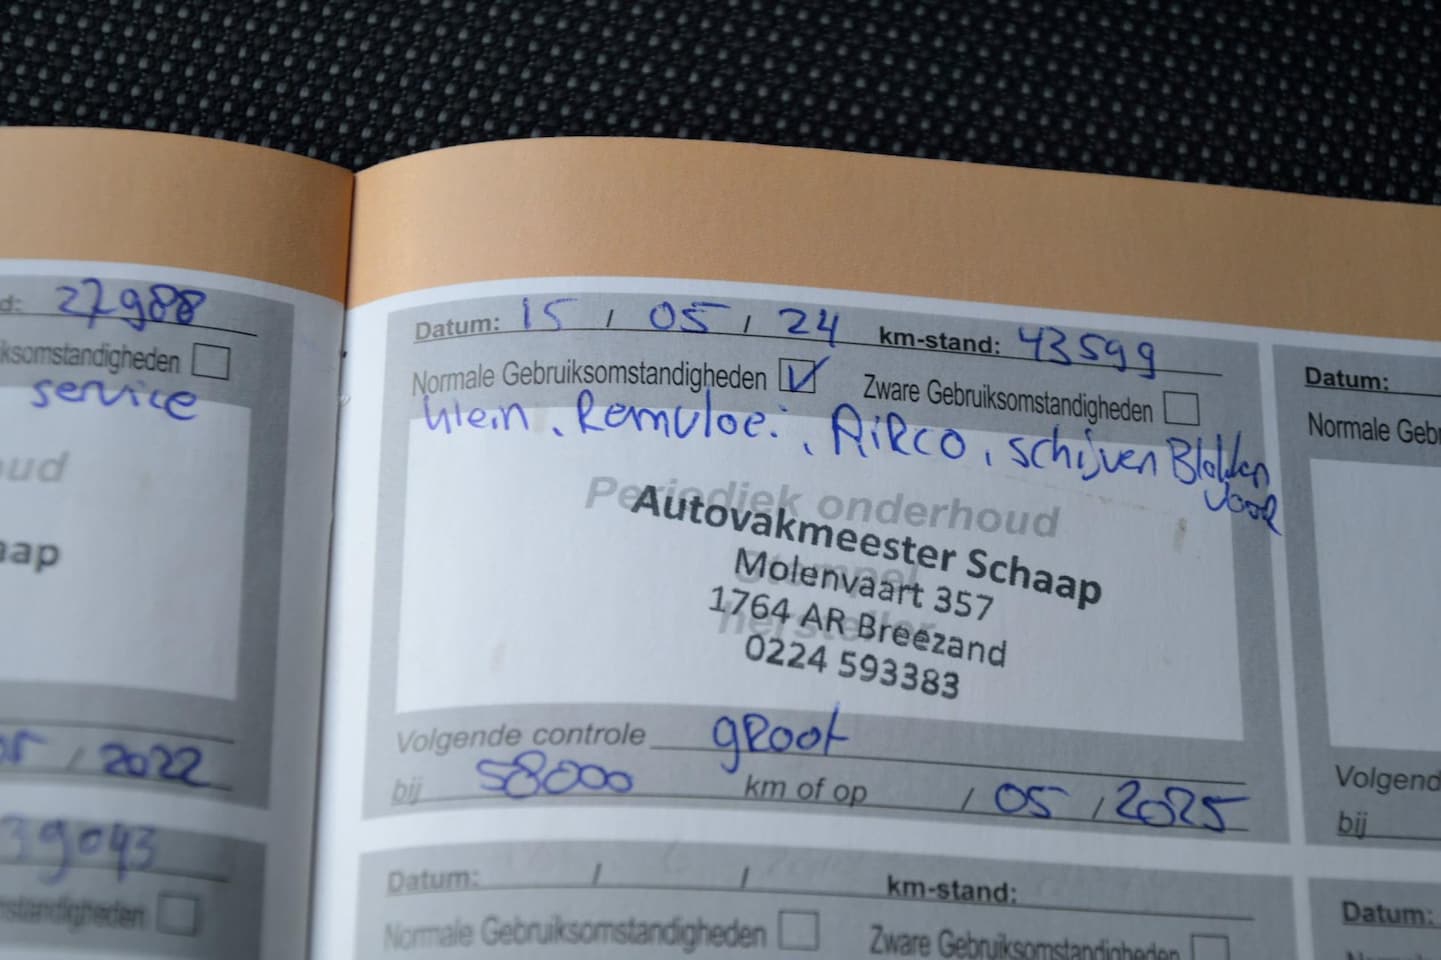 d: 27988
ksomstandigheden
service
oud
aap
05 / 2022
39043
nstandigheden
Datum: 15 / 05 / 24 km-stand: 43599
Normale Gebruiksomstandigheden Zware Gebruiksomstandigheden
klein, Remvloei, AIRCO, schijven Blokken
voor
Periodiek onderhoud
Stempel
hersteller
Autovakmeester Schaap
Molenvaart 357
1764 AR Breezand
0224 593383
Volgende controle groot
bij 58000 km of op / 05 / 2025
Datum: / / km-stand:
Normale Gebruiksomstandigheden Zware Gebruiksomstandigheden
Datum:
Normale Geb
Volgend
bij
Datum: